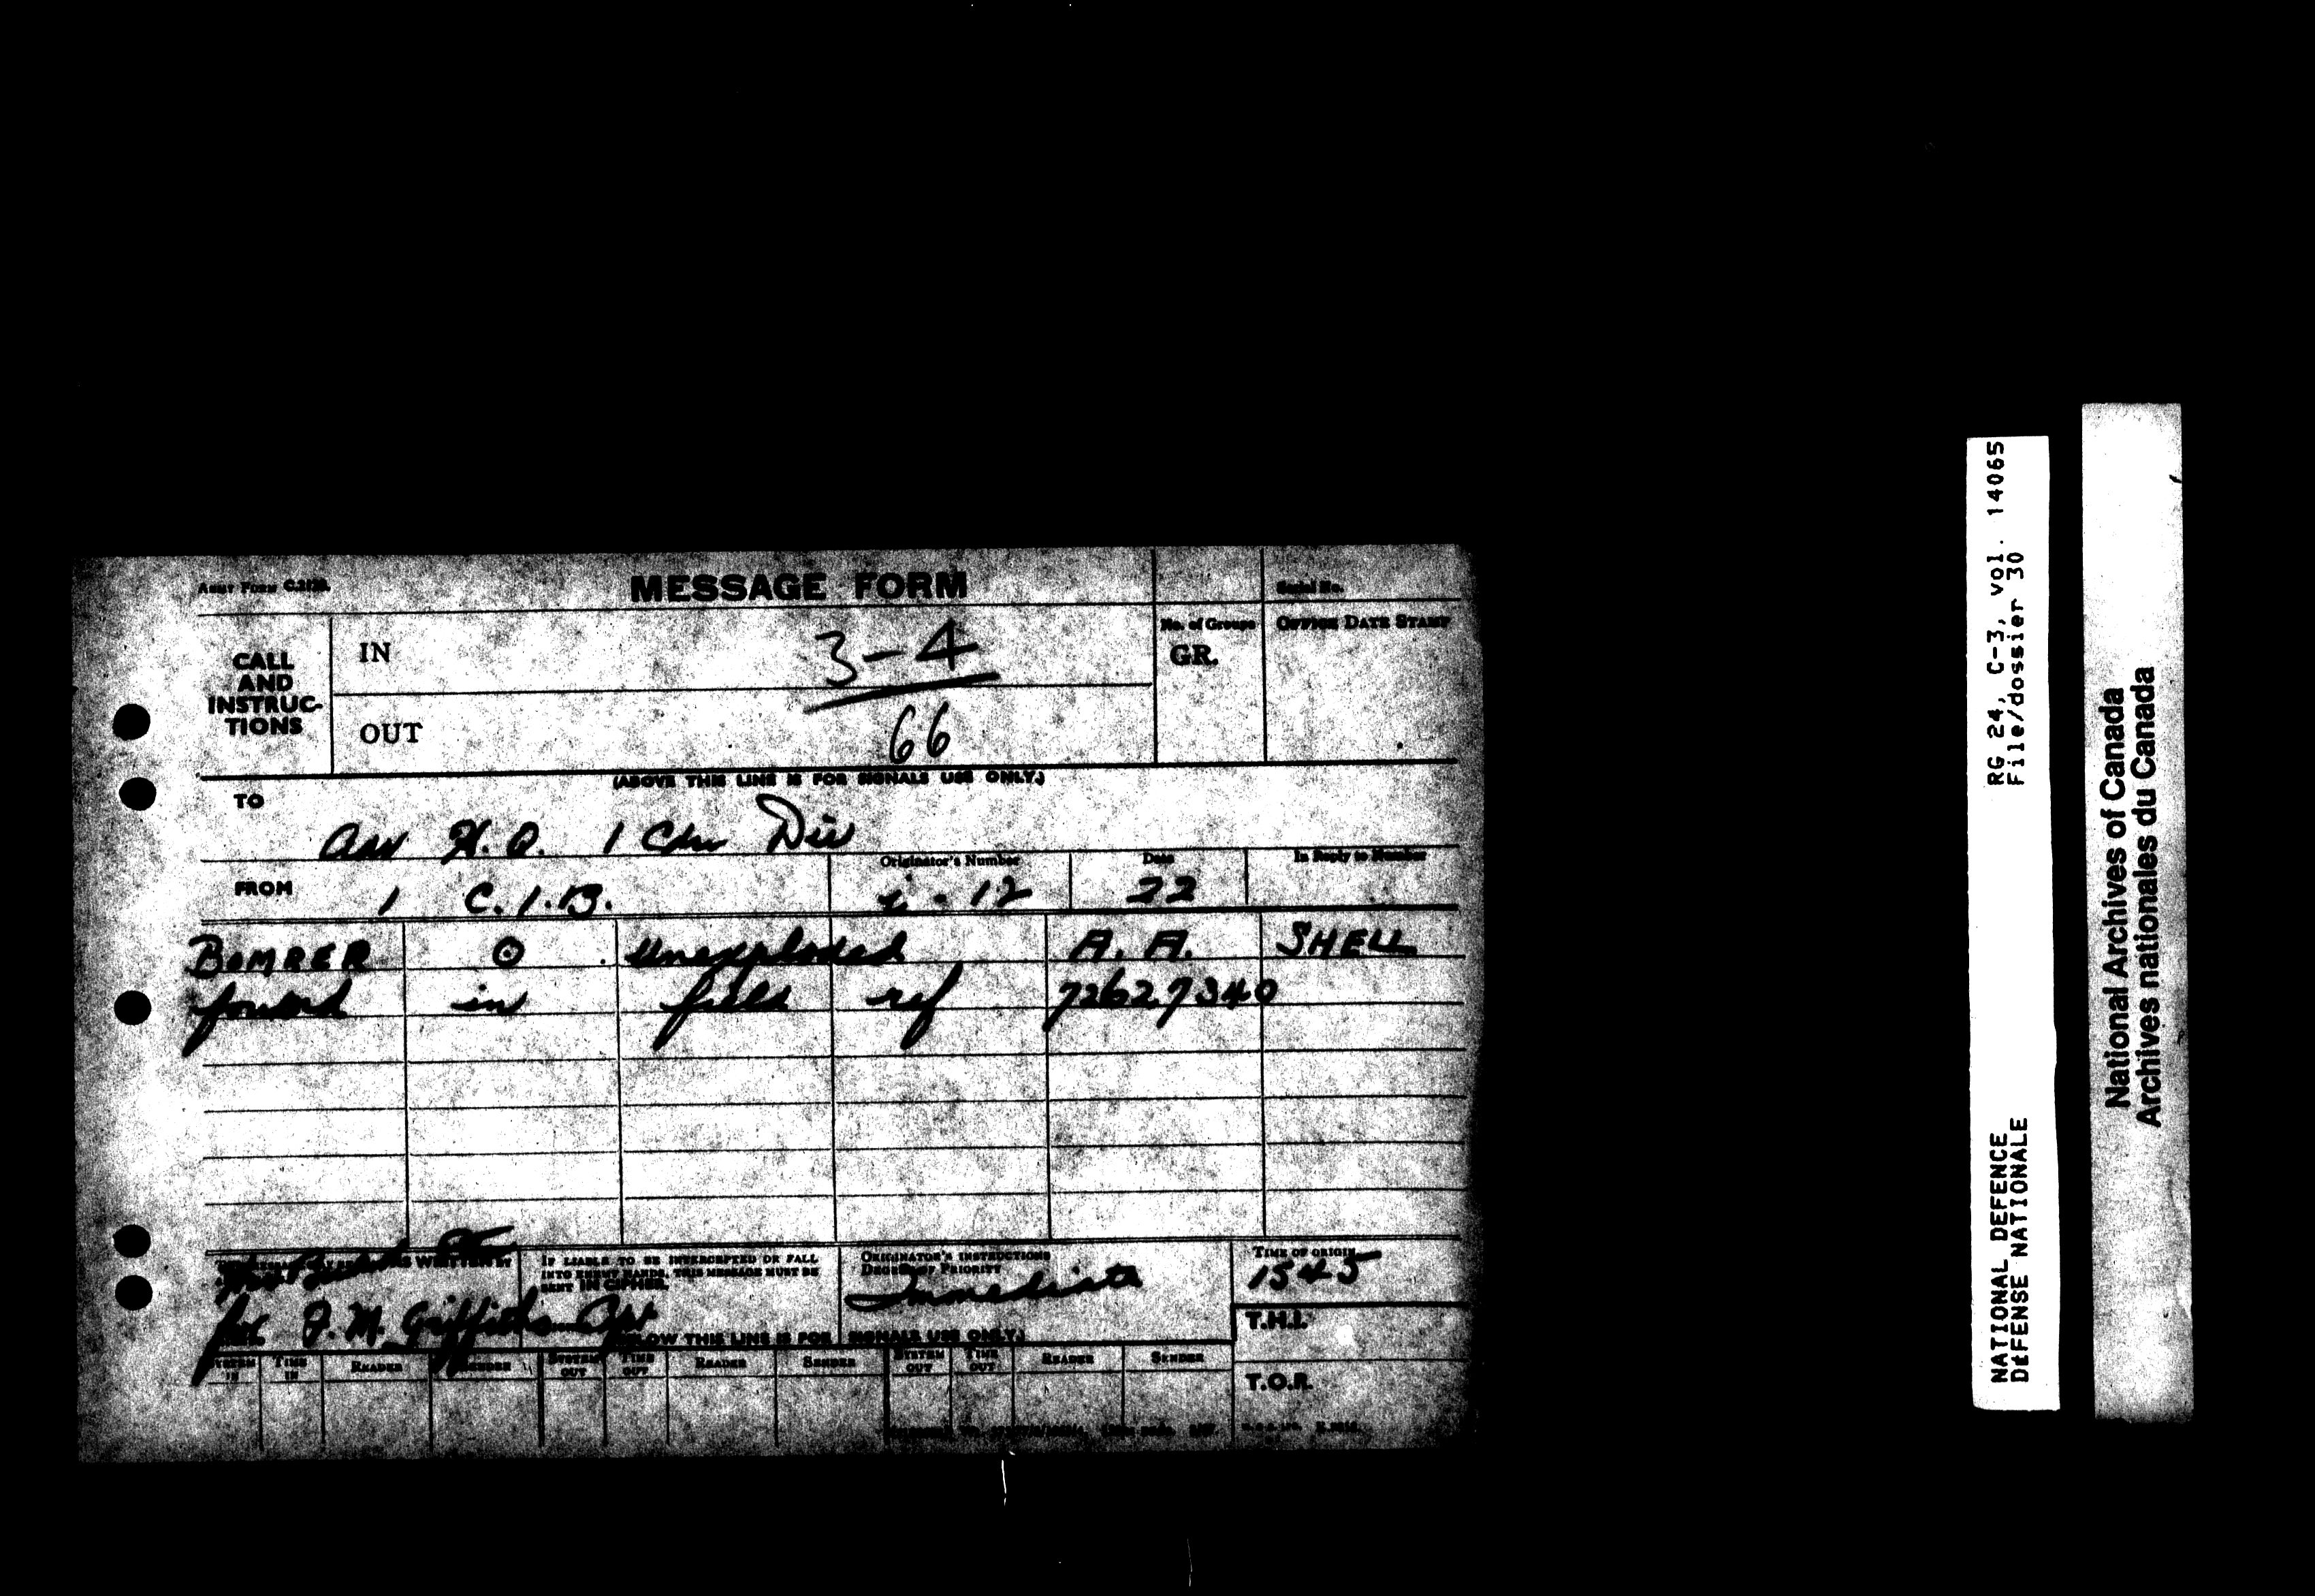 ARMY FORM C.2128. MESSAGE FORM Serial No.
CALL AND INSTRUCTIONS
IN 3-4
No. of Groups
GR.
OFFICE DATE STAMP
OUT 66
(ABOVE THIS LINE IS FOR SIGNALS USE ONLY.)
TO
Adv H.Q. 1 Cdn Div
FROM 1 C.I.B.
Originator's Number
i-12
Date
22
In Reply to Number
BOMBER ⊙ unexploded A.A. SHELL
found in field ref 72627340
WRITTEN
for J.M. Griffiths
IF LIABLE TO BE INTERCEPTED OR FALL
INTO ENEMY HANDS, THIS MESSAGE MUST BE
SENT IN CIPHER.
ORIGINATOR'S INSTRUCTIONS
DEGREE OF PRIORITY
Immediate
TIME OF ORIGIN
1545
T.H.I.
T.O.R.
BELOW THIS LINE IS FOR SIGNALS USE ONLY.)
SYSTEM IN TIME IN READER SENDER SYSTEM OUT TIME OUT READER SENDER SYSTEM OUT TIME OUT READER SENDER
NATIONAL DEFENCE RG 24, C-3, vol. 14065
DEFENSE NATIONALE File/dossier 30
National Archives of Canada
Archives nationales du Canada